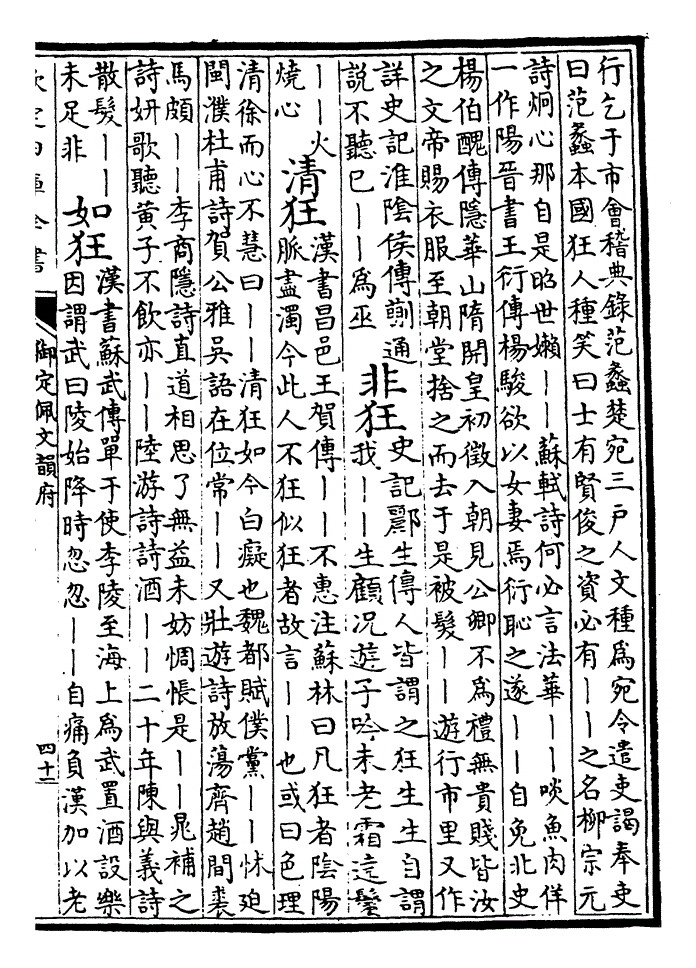 行乞于市會稽典錄范蠡楚宛三戶人文種爲宛令遣吏謁奉吏
曰范蠡本國狂人種笑曰士有賢俊之資必有丨丨之名柳宗元
詩炯心那自是昭世嬾丨丨蘇軾詩何必言法華丨丨啖魚肉佯
一作陽晉書王衍傳楊駿欲以女妻焉衍恥之遂丨丨自免北史
楊伯醜傳隱華山隋開皇初徵入朝見公卿不爲禮無貴賤皆汝
之文帝賜衣服至朝堂捨之而去于是被髮丨丨遊行市里又作
詳史記淮陰侯傳蒯通
說不聽已丨丨爲巫
非狂
史記酈生傳人皆謂之狂生生自謂
我丨丨生顧况遊子吟未老霜遶鬓
丨丨火
燒心
清狂
漢書昌邑王賀傳丨丨不惠注蘇林曰凡狂者陰陽
脈盡濁今此人不狂似狂者故言丨丨也或曰色理
清徐而心不慧曰丨丨清狂如今白癡也魏都賦僕黨丨丨怵迫
閩濮杜甫詩賀公雅吳語在位常丨丨又壯遊詩放蕩齊趙間裘
馬頗丨丨李商隱詩直道相思了無益未妨惆悵是丨丨晁補之
詩妍歌聽黄子不飲亦丨丨陸游詩詩酒丨丨二十年陳與義詩
散髮丨丨
未足非
如狂
漢書蘇武傳單于使李陵至海上爲武置酒設樂
因謂武曰陵始降時忽忽丨丨自痛負漢加以老
欽定四庫全書
御定佩文韻府
四十二